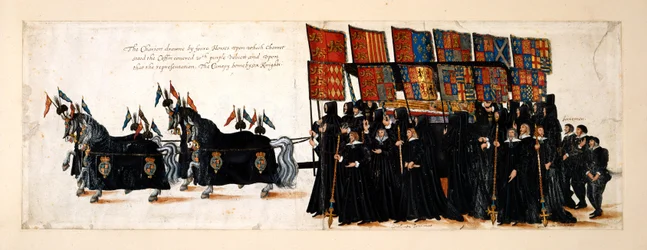 The Chariott drawne by foure Horses upon which Charret
stood the Coffin covered wth purple Velvett and upon
that the representation, The Canapy borne by six Knights.
footemen